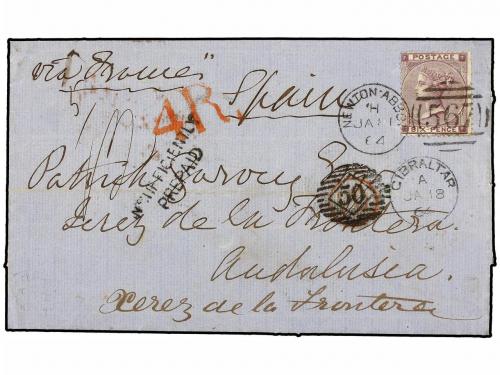 via France
Spain
4R.
INSUFFICIENTLY
PREPAID
POSTAGE
SIX-PENCE
567
NEWTON-ABBOT
H
JA 11
64
GIBRALTAR
A
JA 18
50
Patrick Garvey
Xerez de la Frontera.
Andalusia.
Xerez de la Frontera